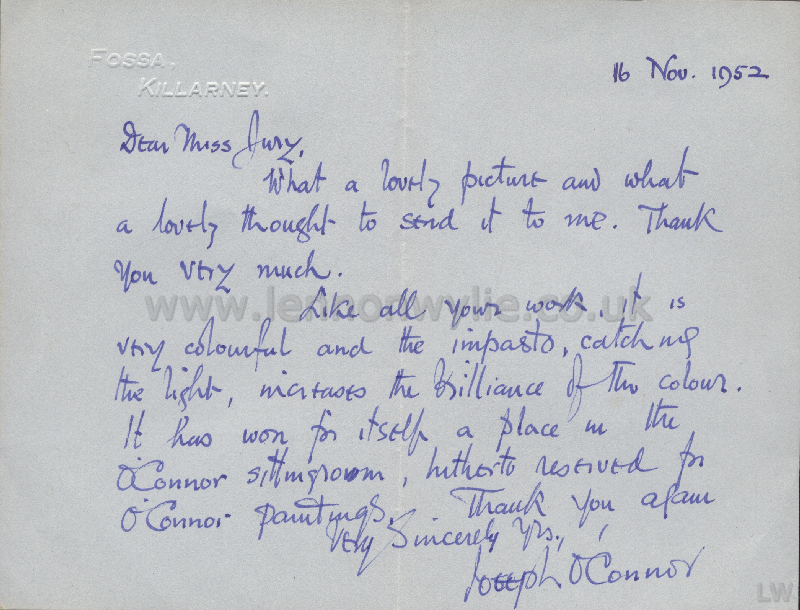 FOSSA,
KILLARNEY.
16 Nov. 1952
Dear Miss Jury,
What a lovely picture and what
a lovely thought to send it to me. Thank
you very much.
www.lennonwylie.co.uk
Like all your work, it is
very colourful and the impasto, catching
the light, increases the brilliance of the colour.
It has won for itself a place in the
O'Connor sittingroom, hitherto reserved for
O'Connor paintings. Thank you again
Very Sincerely Yrs.,
Joseph O'Connor
LW